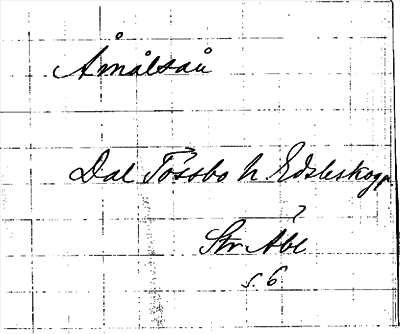 Åmålsån
Dal Tössbo h Edsleskogs
?
Str Åbl
s. 6